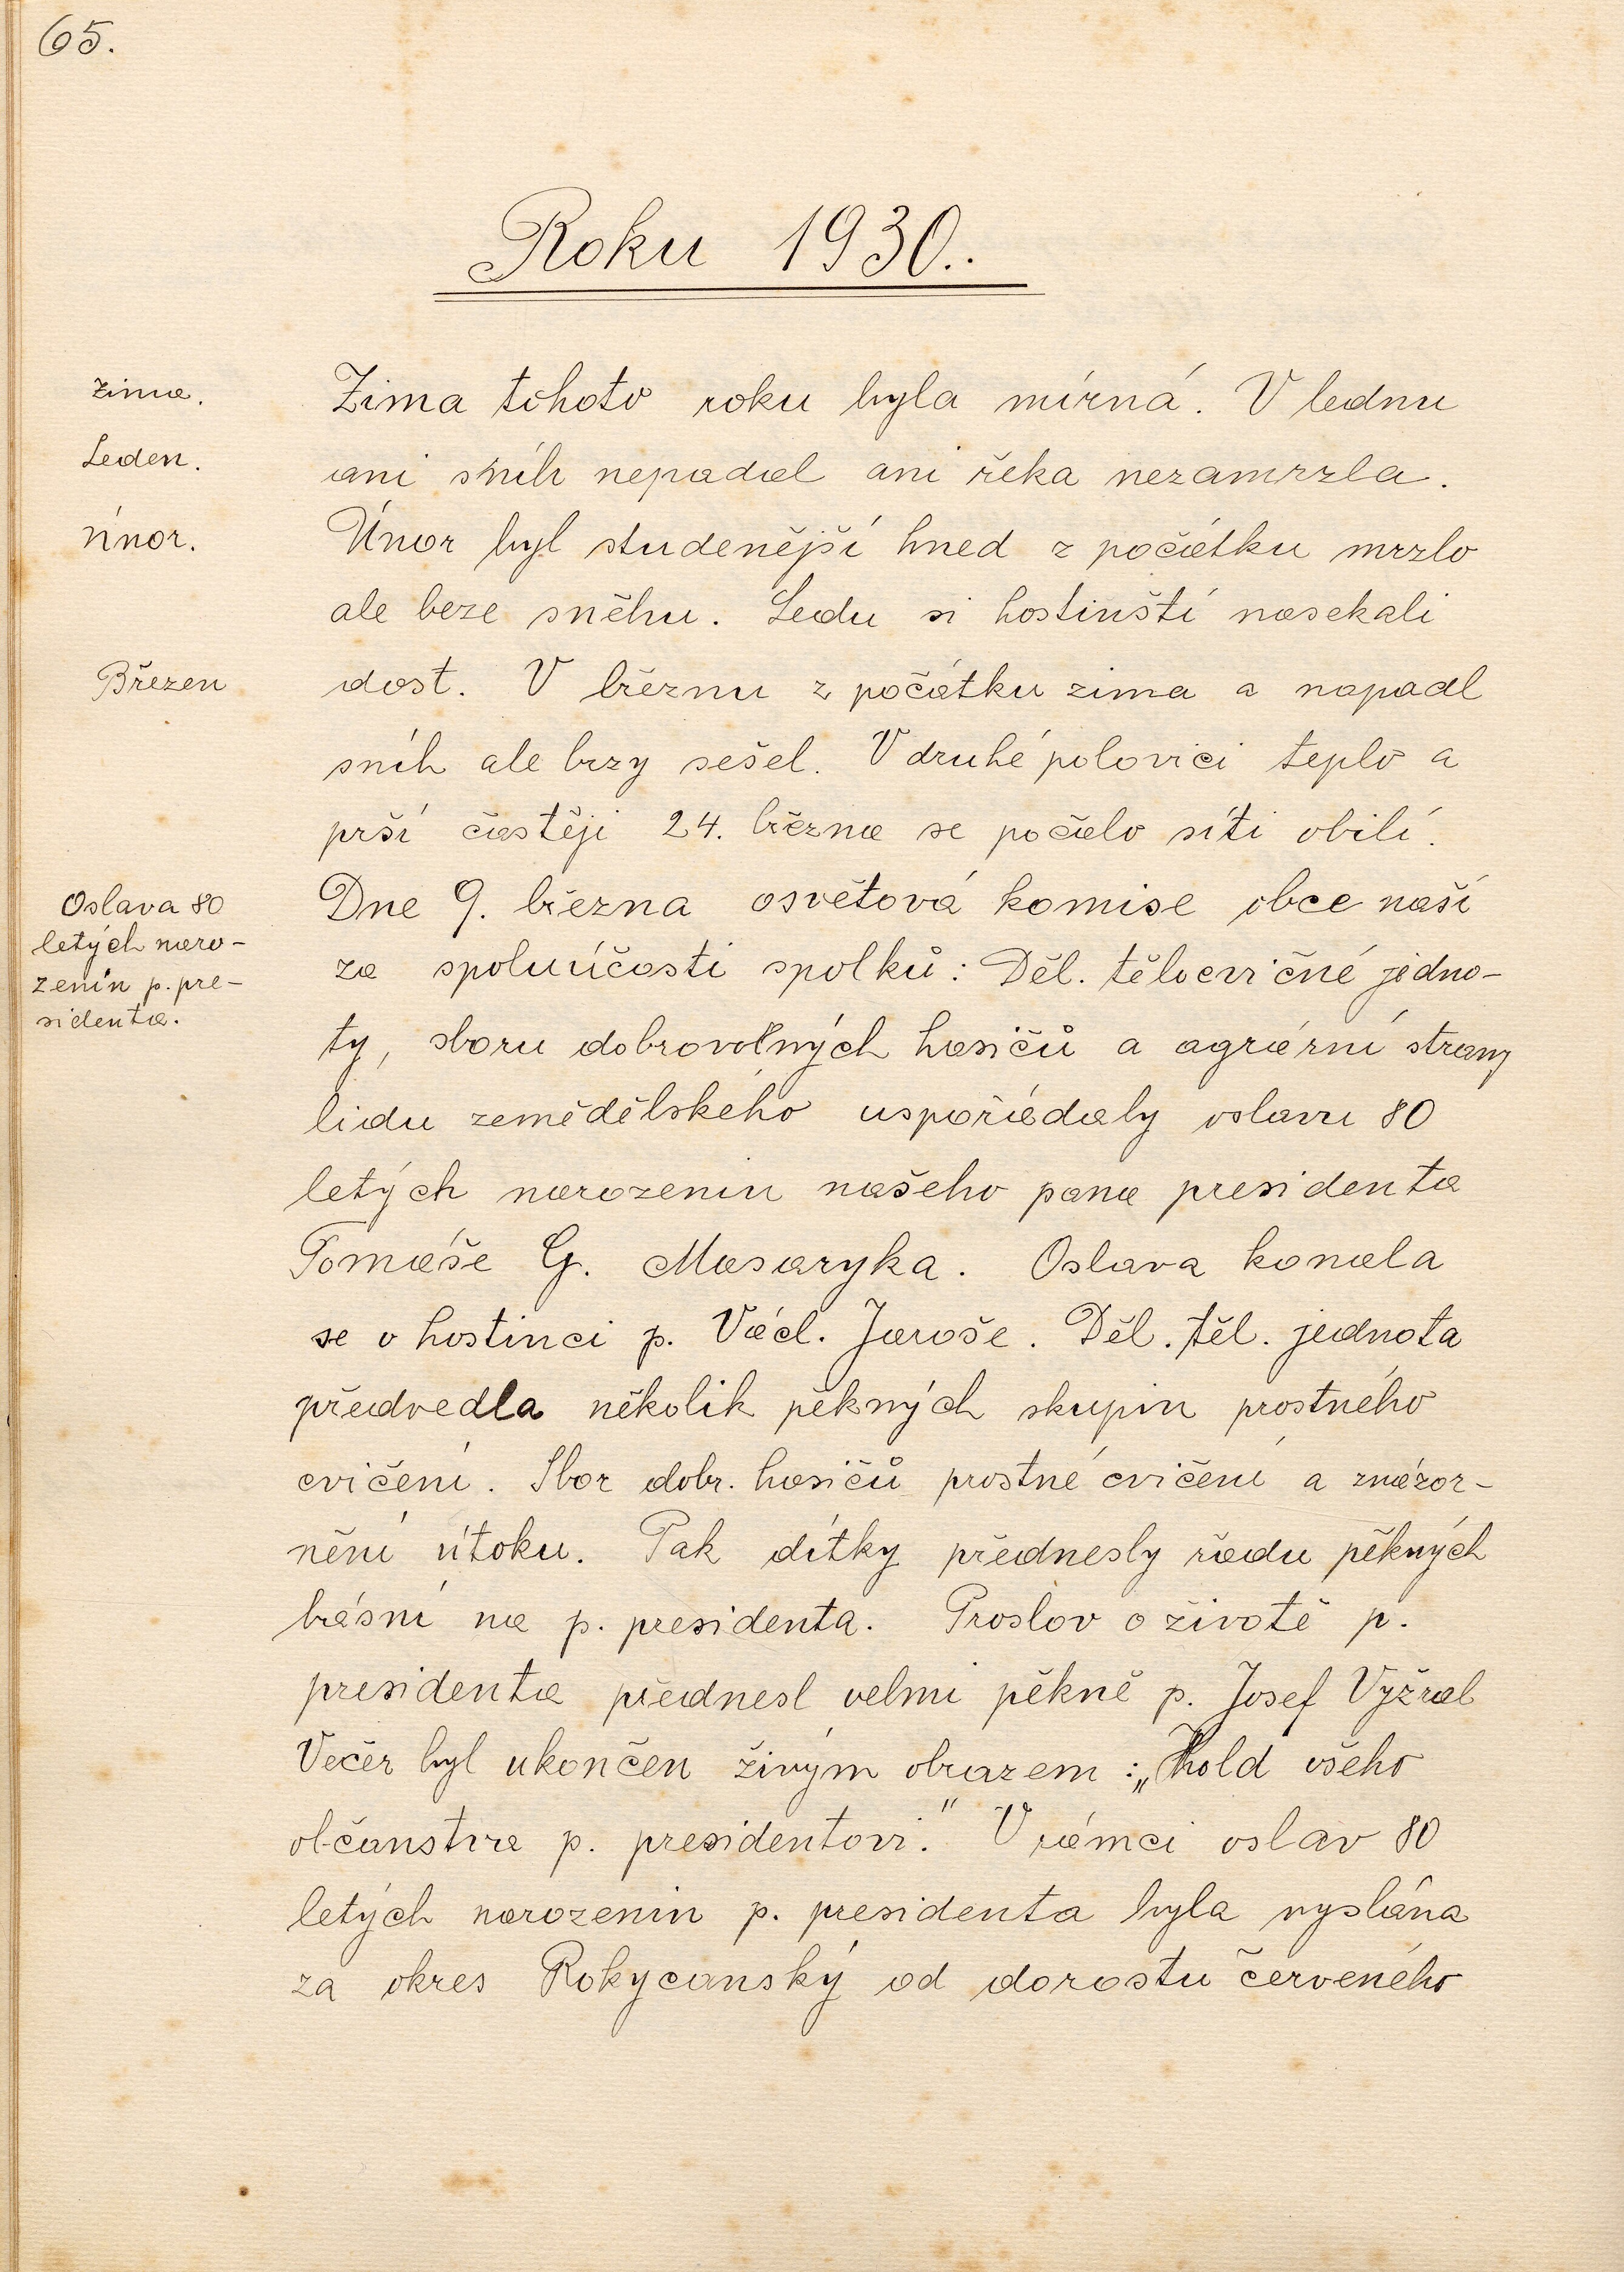 65.
Roku 1930..
Zima.
Zima tohoto roku byla mírná. V lednu
Leden.
ani sníh nepadal ani řeka nezamrzla.
Únor.
Únor byl studenější hned z počátku mrzlo
ale beze sněhu. Ledu si hostinští nasekali
Březen
dost. V březnu z počátku zima a napadl
sníh ale brzy sešel. V druhé polovici teplo a
prší častěji 24. března se počalo síti obilí.
Oslava 80
letých naro-
zenin p. pre-
sidenta.
Dne 9. března osvětová komise obce naší
za spoluúčasti spolků: Děl. tělocvičné jedno-
ty, sboru dobrovolných hasičů a agrární strany
lidu zemědělského uspořádaly oslavu 80
letých narozenin našeho pana presidenta
Tomáše G. Masaryka. Oslava konala
se v hostinci p. Václ. Jaroše. Děl. těl. jednota
předvedla několik pěkných skupin prostného
cvičení. Sbor dobr. hasičů prostné cvičení a znázor-
nění útoku. Pak dítky přednesly řadu pěkných
básní na p. presidenta. Proslov o životě p.
presidenta přednesl velmi pěkně p. Josef Vyžral
Večer byl ukončen živým obrazem: „Hold všeho
občanstva p. presidentovi." V rámci oslav 80
letých narozenin p. presidenta byla vyslána
za okres Rokycanský od dorostu červeného